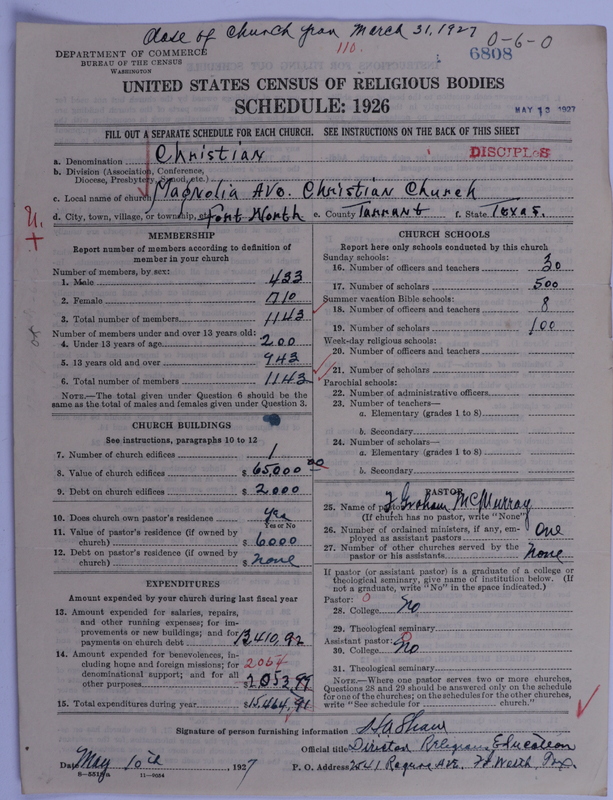 close of Church year March 31, 1927
0-6-0
110.
6808
DEPARTMENT OF COMMERCE
BUREAU OF THE CENSUS
WASHINGTON
UNITED STATES CENSUS OF RELIGIOUS BODIES
SCHEDULE: 1926
MAY 13 1927
FILL OUT A SEPARATE SCHEDULE FOR EACH CHURCH. SEE INSTRUCTIONS ON THE BACK OF THIS SHEET
a. Denomination Christian
DISCIPLES
b. Division (Association, Conference,
Diocese, Presbytery, Synod, etc.)
c. Local name of church Magnolia Ave. Christian Church
d. City, town, village, or township, etc. Fort Worth e. County Tarrant f. State Texas.
MEMBERSHIP
Report number of members according to definition of
member in your church
Number of members, by sex:
1. Male 433
2. Female 710
3. Total number of members 1143
Number of members under and over 13 years old:
4. Under 13 years of age 200
5. 13 years old and over 943
6. Total number of members 1143
NOTE.—The total given under Question 6 should be
the same as the total of males and females given under Question 3.
CHURCH BUILDINGS
See instructions, paragraphs 10 to 12
7. Number of church edifices 1
8. Value of church edifices $ 65,000.00
9. Debt on church edifices $ 2,000
10. Does church own pastor's residence yes
Yes or No
11. Value of pastor's residence (if owned by
church) $ 6000
12. Debt on pastor's residence (if owned by
church) $ none
EXPENDITURES
Amount expended by your church during last fiscal year
13. Amount expended for salaries, repairs,
and other running expenses; for im-
provements or new buildings; and for
payments on church debt 13,410,92
14. Amount expended for benevolences, in-
cluding home and foreign missions; for
denominational support; and for all
other purposes $ 2,053,99
15. Total expenditures during year $ 15,464,91
CHURCH SCHOOLS
Report here only schools conducted by this church
Sunday schools:
16. Number of officers and teachers 30
17. Number of scholars 500
Summer vacation Bible schools:
18. Number of officers and teachers 8
19. Number of scholars 100
Week-day religious schools:
20. Number of officers and teachers
21. Number of scholars
Parochial schools:
22. Number of administrative officers
23. Number of teachers—
a. Elementary (grades 1 to 8)
b. Secondary
24. Number of scholars—
a. Elementary (grades 1 to 8)
b. Secondary
PASTOR
25. Name of pastor J Graham McMurray
(If church has no pastor, write "None")
26. Number of ordained ministers, if any, em-
ployed as assistant pastors One
27. Number of other churches served by the
pastor or his assistants none
If pastor (or assistant pastor) is a graduate of a college or
theological seminary, give name of institution below. (If
not a graduate, write "No" in the space indicated.)
Pastor: 0
28. College No
29. Theological seminary
Assistant pastor: 0
30. College No
31. Theological seminary
NOTE.—Where one pastor serves two or more churches,
Questions 28 and 29 should be answered only on the schedule
for one of the churches; on the schedules for the other churches,
write "See schedule for church."
Signature of person furnishing information Shaw
Official title Director Religious Education
Date May 10th, 1927 P. O. Address 2541 Ave. Ft Worth, Tex.
8-5518a 11-9054